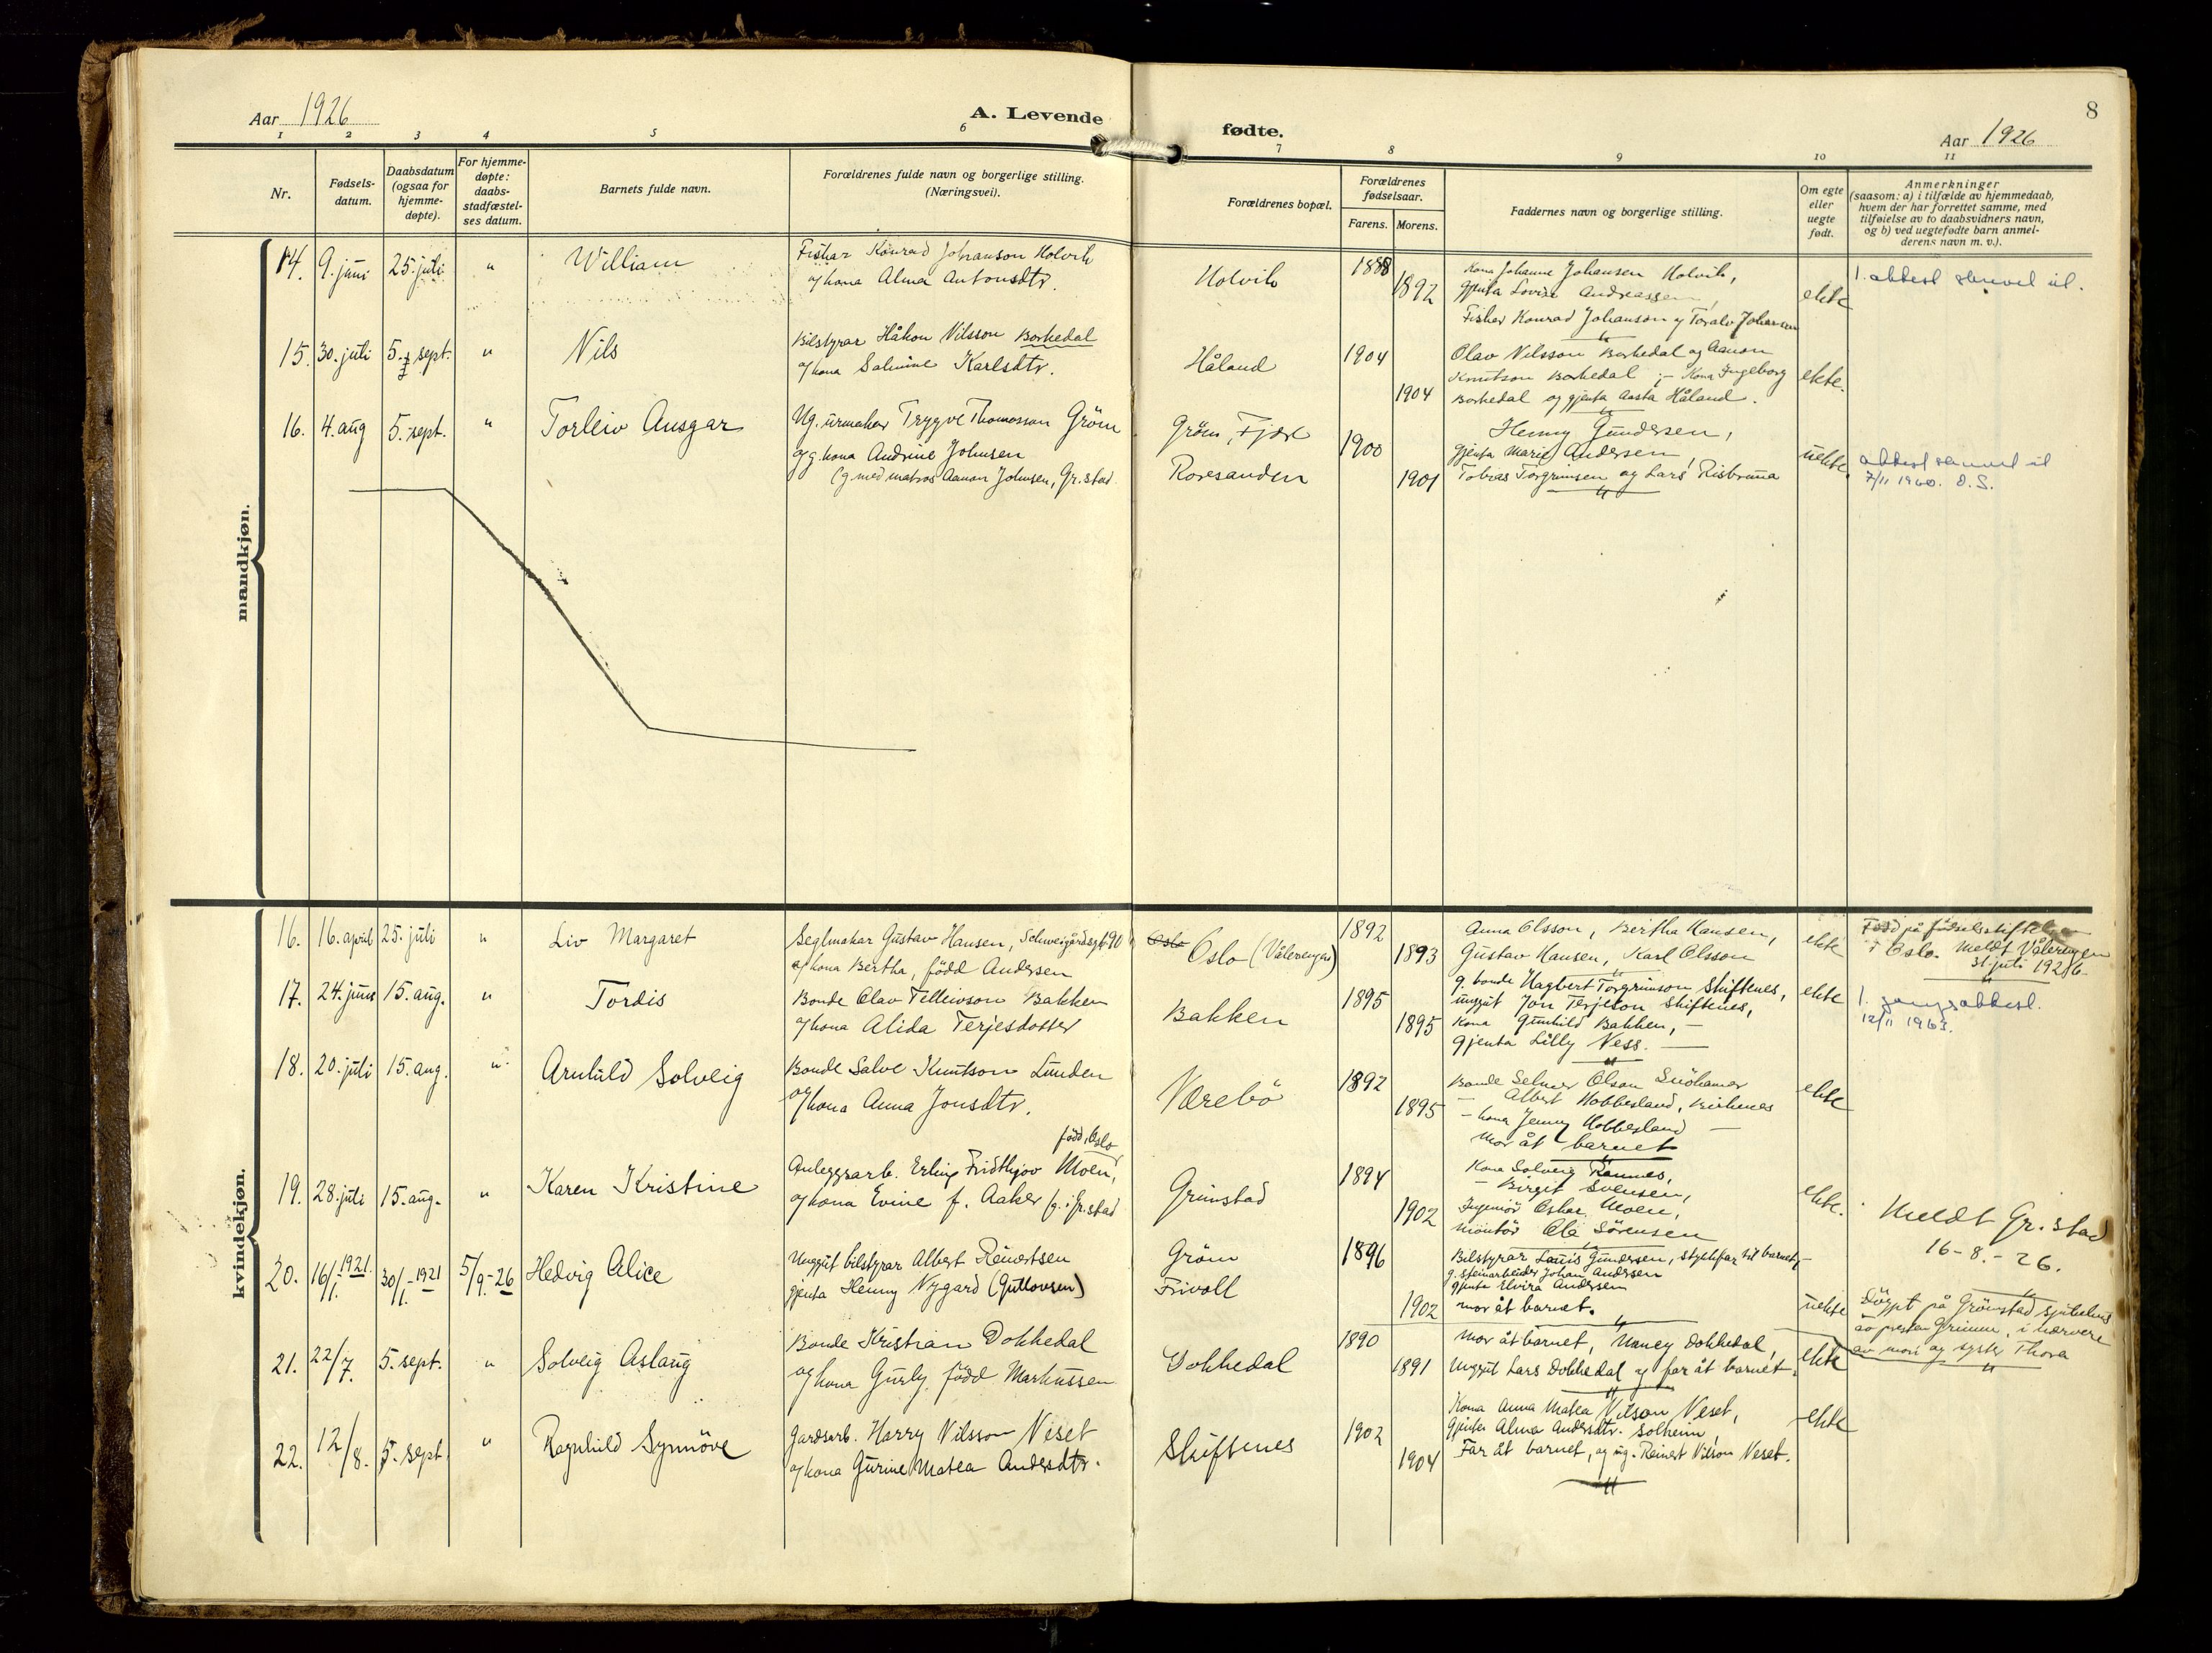 8
Aar 1926
A. Levende
fødte.
Aar 1926
1 2 3 4 5 6 7 8 9 10 11
Nr.
Fødsels-
datum.
Daabsdatum
(ogsaa for
hjemme-
døpte).
For hjemme-
døpte:
daabs-
stadfæstel-
ses datum.
Barnets fulde navn.
Forældrenes fulde navn og borgerlige stilling.
(Næringsvei).
Forældrenes bopæl.
Forældrenes
fødselsaar.
Farens. Morens.
Faddernes navn og borgerlige stilling.
Om egte
eller
uegte
født.
Anmerkninger
(saasom: a) i tilfælde av hjemmedaab,
hvem der har forrettet samme, med
tilføielse av to daabsvidners navn,
og b) ved uegtefødte barn anmel-
derens navn m. v.).
mandkjøn.
14. 9. juni 25. juli " William
Fiskar Konrad Johanson Holvik
og kona Alma Antonsdtr.
Holvik
1888
1892
Kona Johanne Johansen Holvik,
gjenta Lovise Andreassen,
Fisker Konrad Johanson og Toralv Johansen
ekte
1. attest skrevet ut.
15. 30. juli 5. sept. " Nils
Bilstyrar Håkon Nilsson Borkedal
og kona Salmine Karlsdtr.
Håland
1904
1904
Olav Nilsson Borkedal og Aanon
Knutson Borkedal ; - Kona Ingeborg
Borkedal og gjenta Aasta Håland.
ekte.
16. 4. aug 5. sept. " Torleiv Ansgar
Ug. urmaker Trygve Thomasson Gröm
og g. kona Andrine Johnsen
(g. med matros Aanon Johnsen, Gr.stad
Gröm, Fjære
Roresanden
1900
1901
Henny Gundersen,
gjenta Marie Andersen,
Tobias Torgrimsen og Lars Risbruna
uekte.
attest skrevet ut
7/11 1960. O.S.
kvindekjøn.
16. 16. april 25. juli " Liv Margaret
Seglmakar Gustav Hansen, Schweigårdsgt. 90
og kona Bertha, född Andersen
Oslo Oslo (Vålerengen)
1892
1893
Anna Olsson, Bertha Hansen,
Gustav Hansen, Karl Olsson
ekte
Född på födselsstiftelsen
i Oslo. Meldt Vålerengen
31 juli 1926.
17. 24. juni 15. aug. " Tordis
Bonde Olav Tellevson Bakken
og kona Alida Terjesdotter
Bakken
1895
1895
g. bonde Hagbert Torgrimson Skiftenes,
ungut Jon Terjeson Skiftenes,
Kona Gunhild Bakken, —
gjenta Lilly Ness. —
ekte
1. gangsattest.
12/11 1963.
18. 20. juli 15. aug. " Arnhild Solveig
Bonde Salve Knutson Lunden
og kona Anna Jonsdtr.
Værebö
1892
1895
Bonde Selmer Olson
— Albert Hobbesland, Birkenes
— kona Jenny Hobbesland —
Mor åt barnet
ekte
19. 28. juli 15. aug. " Karen Kristine
född i Oslo
Anleggsarb. Erling Fridthjov Moen,
og kona Evine f. Aaker (g. i Gr.stad
Grimstad
1894
1902
Kona Solveig Rannes,
— Birgit Svensen,
Ingeniör Oskar Moen,
montör Ole Sørensen
ekte.
Meldt Gr.stad
16-8.-26.
20. 16/1. 1921. 30/1.-1921 5/9.-26 Hedvig Alice
Ungut bilstyrar Albert Reinertsen
gjenta Henny Nygard (Guttorsen)
Gröm
Frivoll
1896
1902
Bilstyrar Lauis Gundersen, stykfar til barnet,
g. steinarbeider Johan Andersen
gjenta Elvira Andersen
mor åt barnet.
uekte
Döypt på Grimstad sjukehus
av presten Grimm, i nærvere
av mori og syster Thora
21. 22/7. 5. sept. " Solveig Aslaug
Bonde Kristian Dokkedal
og kona Gurly, född Markussen
Dokkedal
1890
1891
Mor åt barnet, Nancy Dokkedal,
Ungut Lars Dokkedal og far åt barnet.
ekte
22. 12/8. 5. sept. " Ragnhild Synnöve
Gardsarb. Harry Nilsson Neset
og kona Gurine Matea Andersdtr.
Skiftenes
1902
1904
Kona Anna Matea Nilson Neset,
Gjenta Alma Andersdtr. Solheim,
Far åt barnet, og ug. Reinert Nilson Neset.
ekte